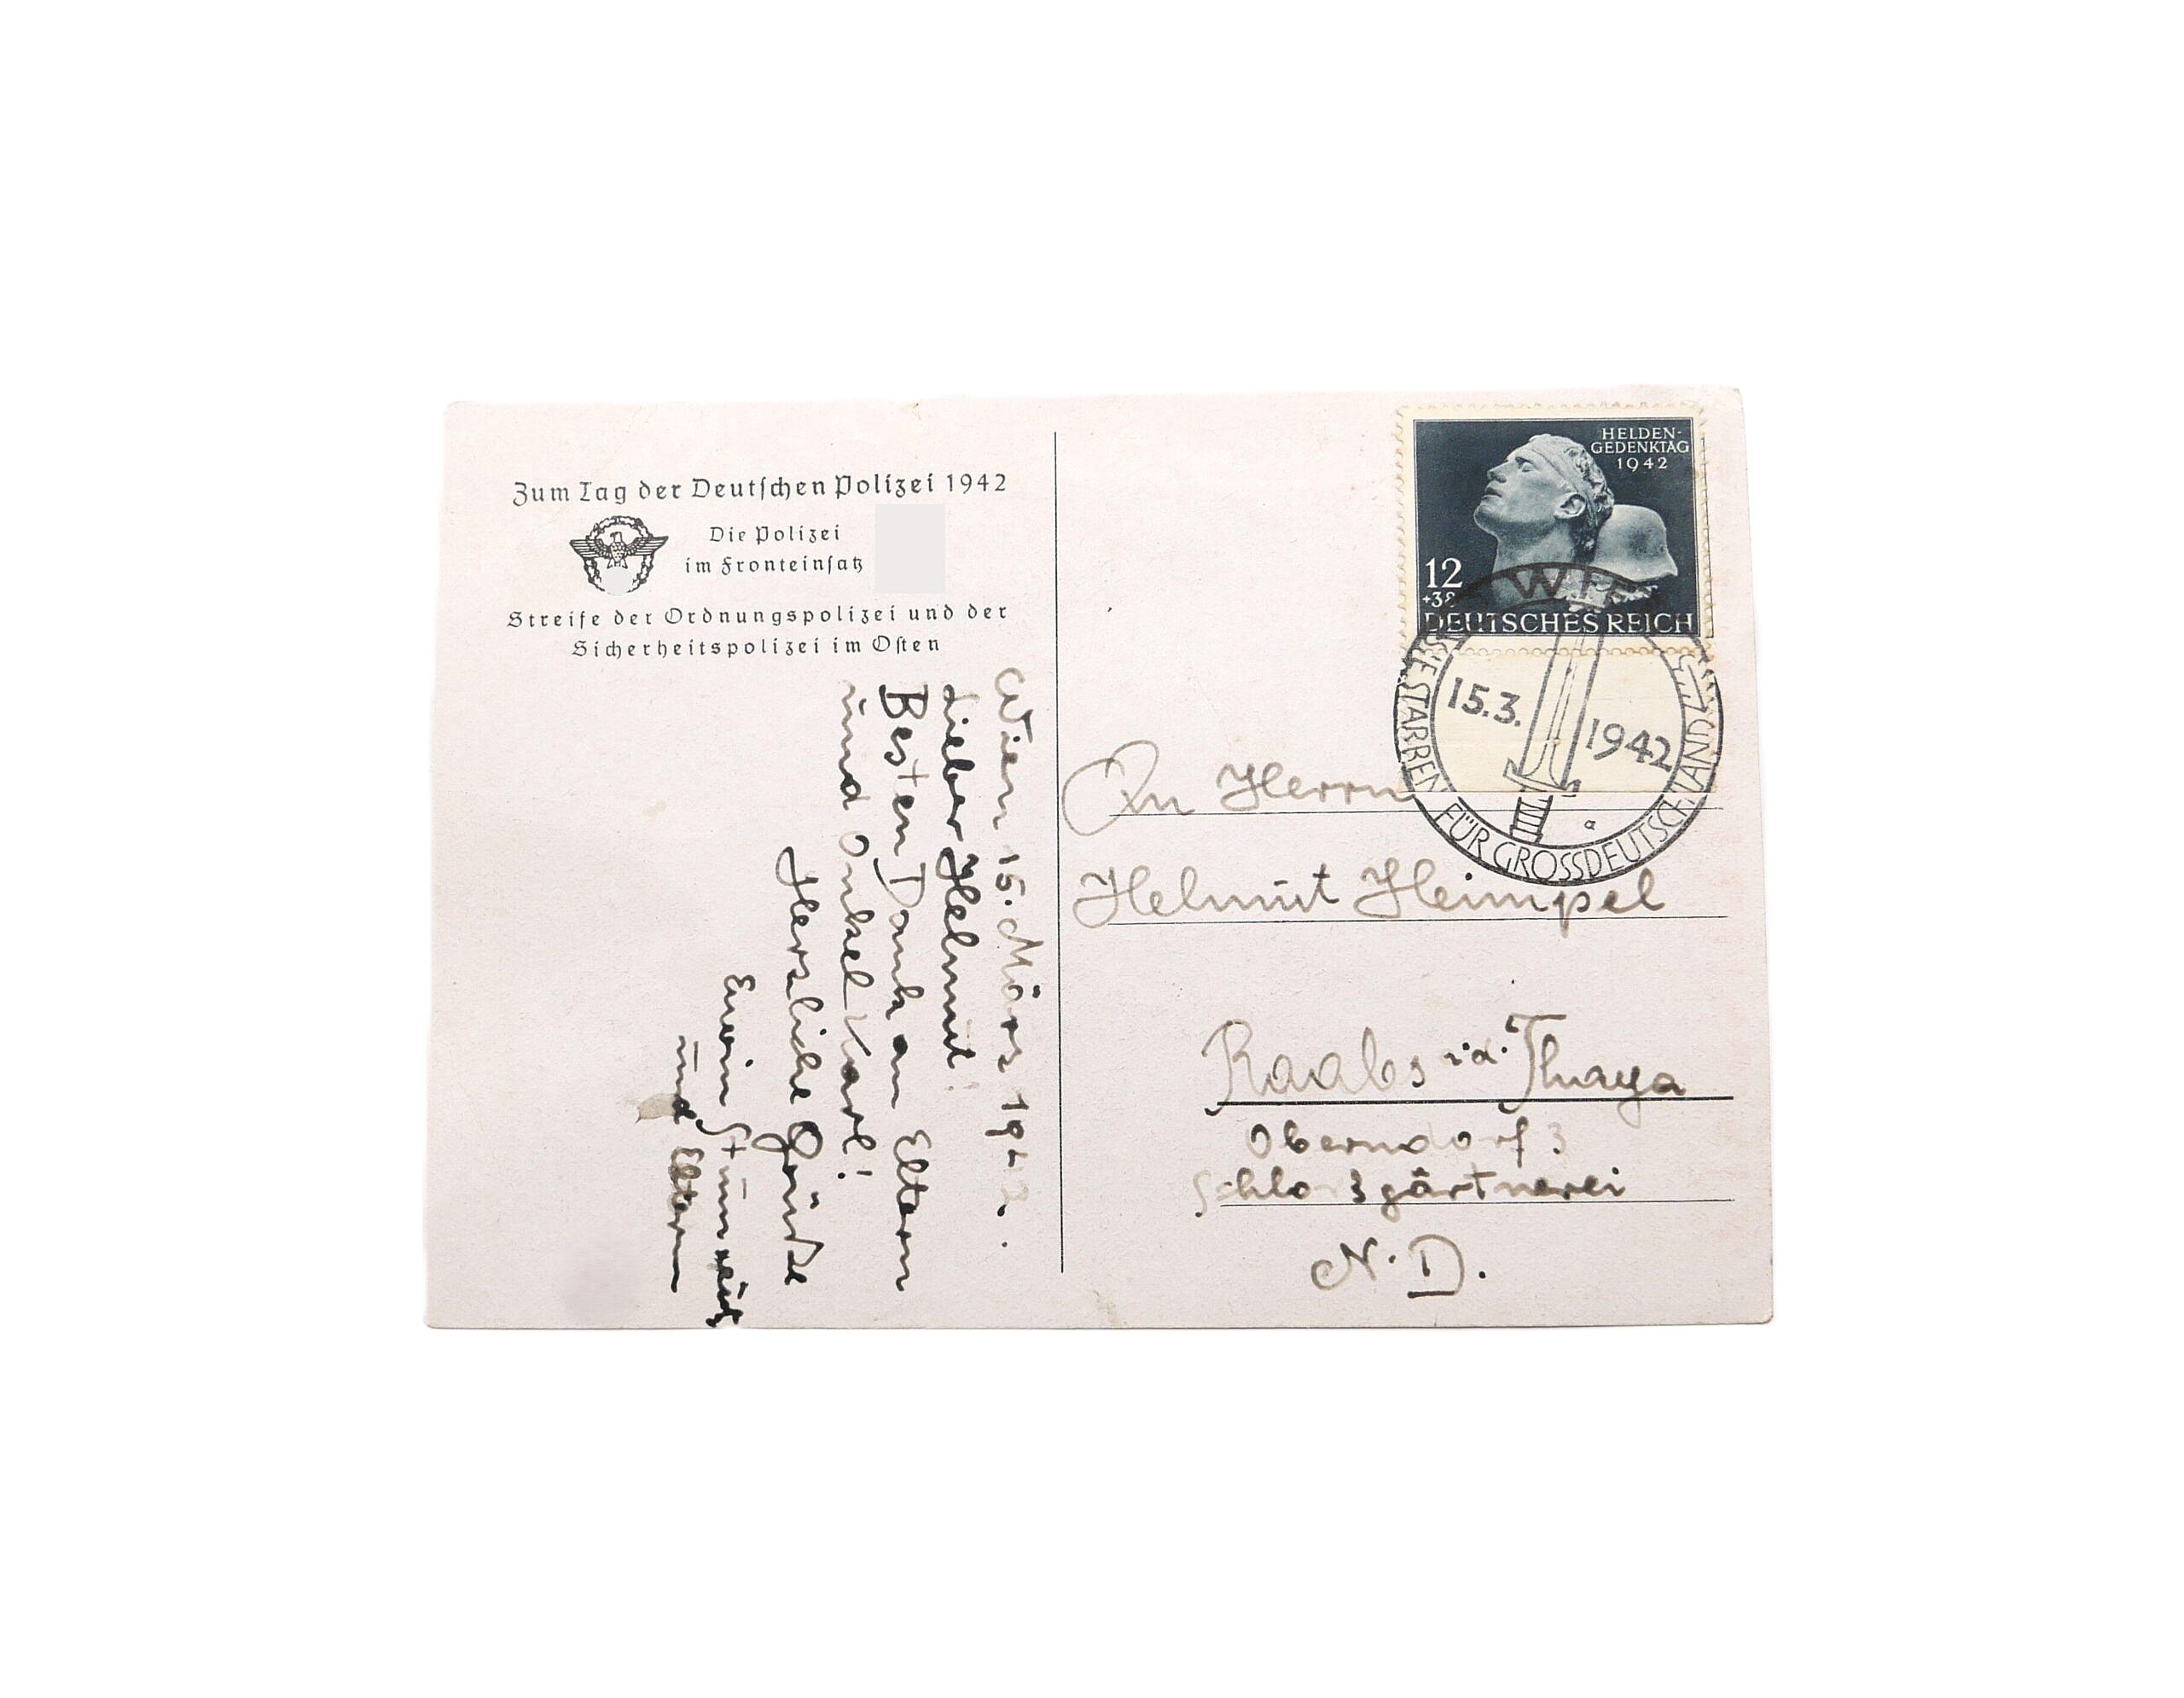 Zum Tag der Deutschen Polizei 1942
Die Polizei
im Fronteinsatz
Streife der Ordnungspolizei und der
Sicherheitspolizei im Osten
Wien 15. März 1942.
Lieber Helmut!
Besten Dank an Eltern
und Onkel Karl!
Herzliche Grüße
Erwin
und Eltern
HELDEN-
GEDENKTAG
1942
12
+38
DEUTSCHES REICH
WIEN
15.3. 1942
SIE STARBEN FÜR GROSSDEUTSCHLAND
a
An Herrn
Helmut Heimpel
Raabs a.d. Thaya
Oberndorf 3
Schloßgärtnerei
N.D.